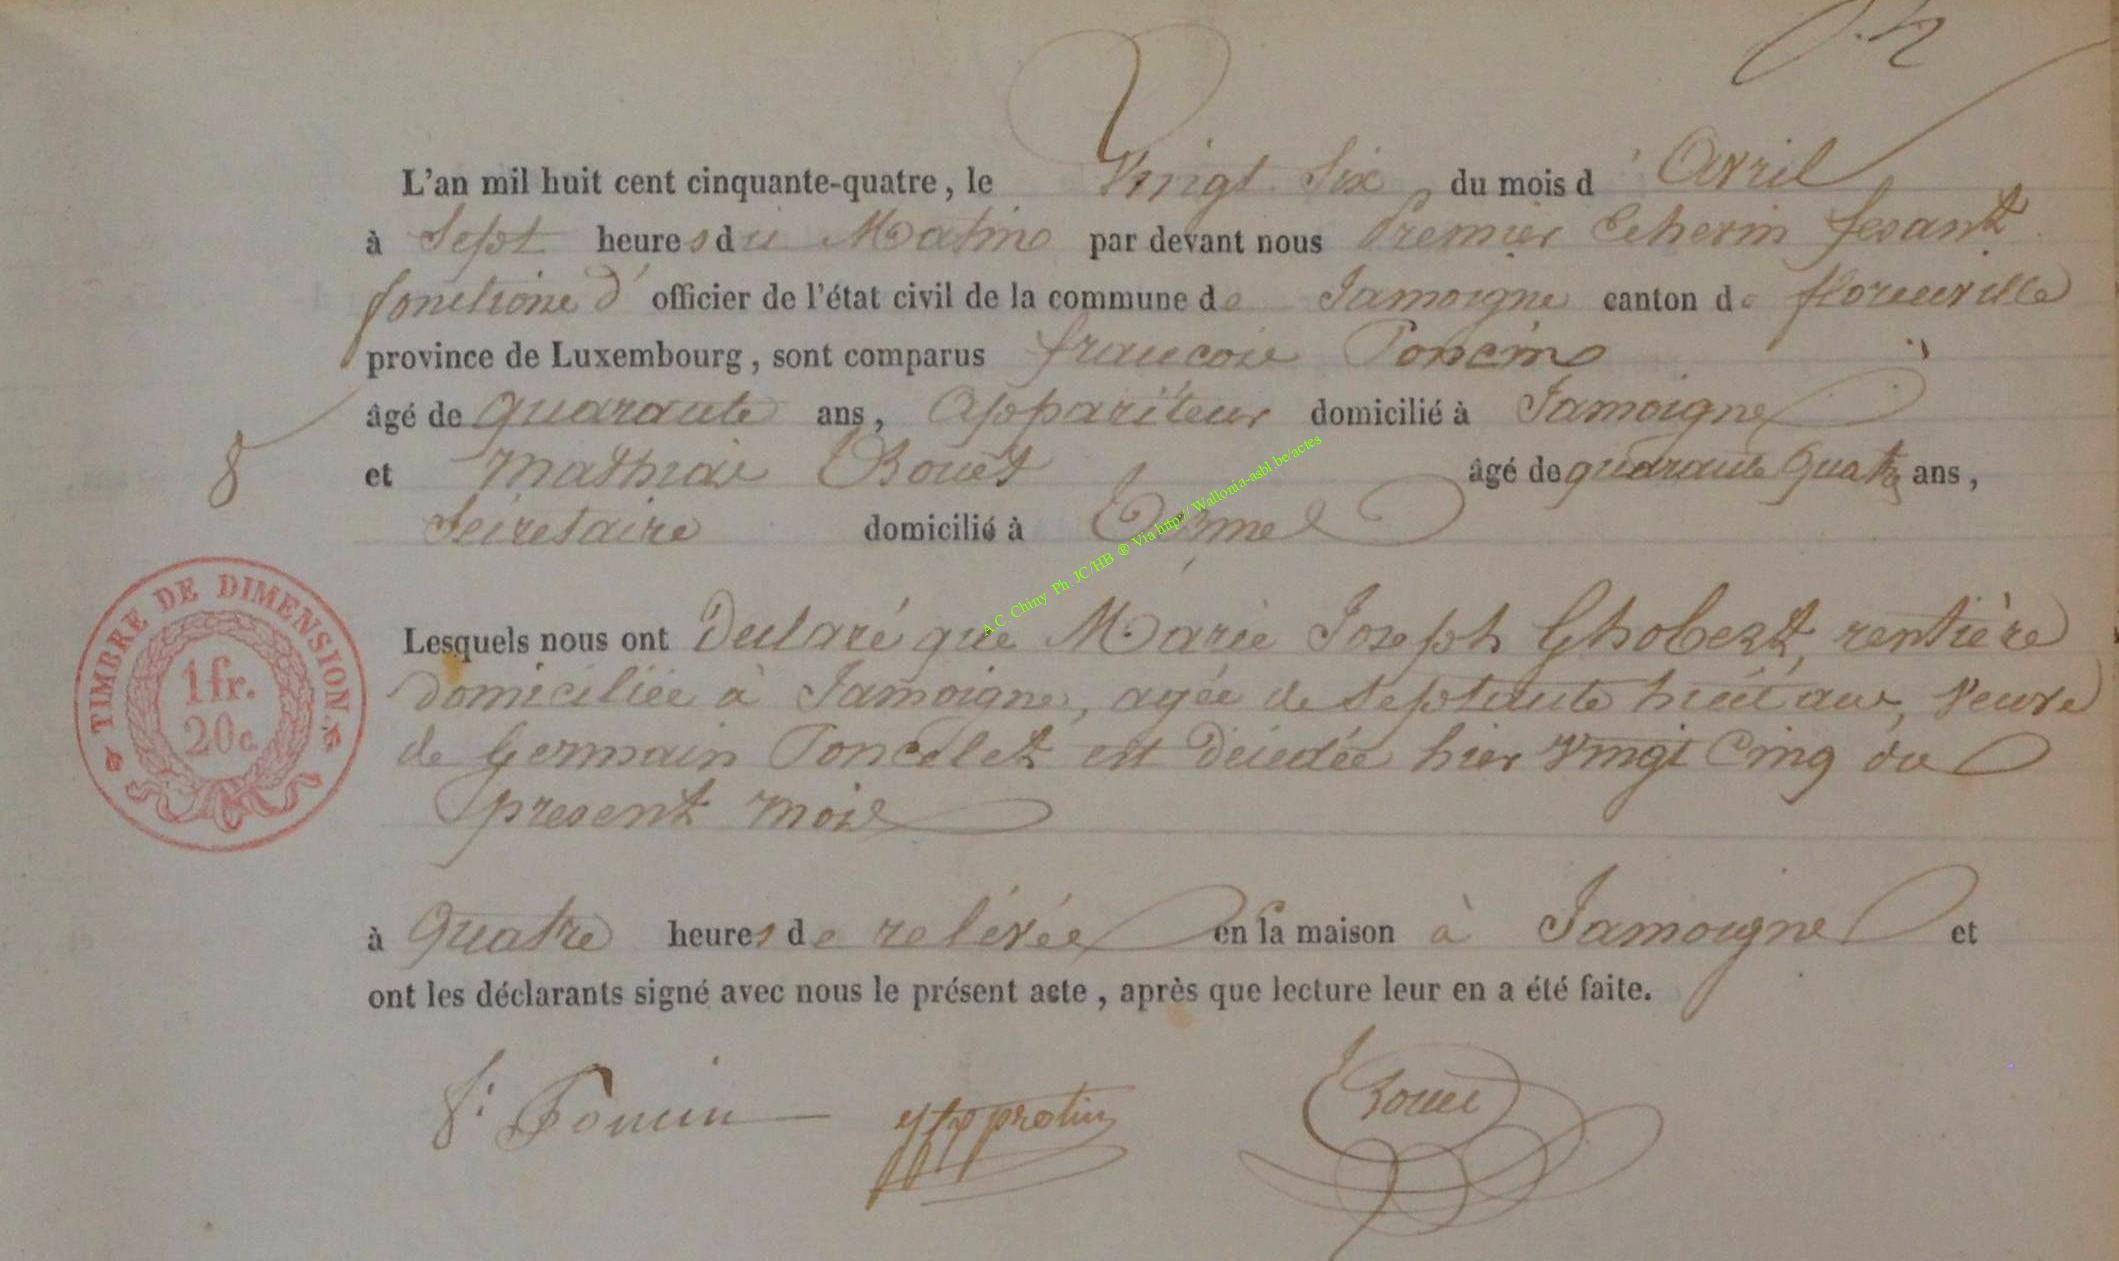 L'an mil huit cent cinquante-quatre, le Vingt Six, du mois d'Avril
à Sept heures du Matin par devant nous Premier Echevin fesant
fonctions d'officier de l'état civil de la commune de Jamoigne canton de florenville
province de Luxembourg, sont comparus francois Poncin
âgé de quarante ans, Appariteur domicilié à Jamoigne
et Mathias Bouet âgé de quarante quatre ans,
8
Sécretaire domicilié à
A C Chiny Ph JC/HB ® Via http://Wallonia-asbl.be/actes
TIMBRE DE DIMENSION.
1 fr.
20 c.
Lesquels nous ont Declaré que Marie Joseph Ghobert, rentière
domiciliée à Jamoigne, agée de septante huit ans, Veuve
de Germain Poncelet est décédée hier Vingt Cinq du
present mois
à Quatre heures de relevée en sa maison à Jamoigne et
ont les déclarants signé avec nous le présent acte, après que lecture leur en a été faite.
f: Poncin Bouet